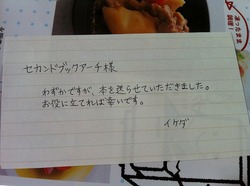 セカンドブックアーチ様
わずかですが、本を送らせていただきました。
お役に立てれば幸いです。
イケダ